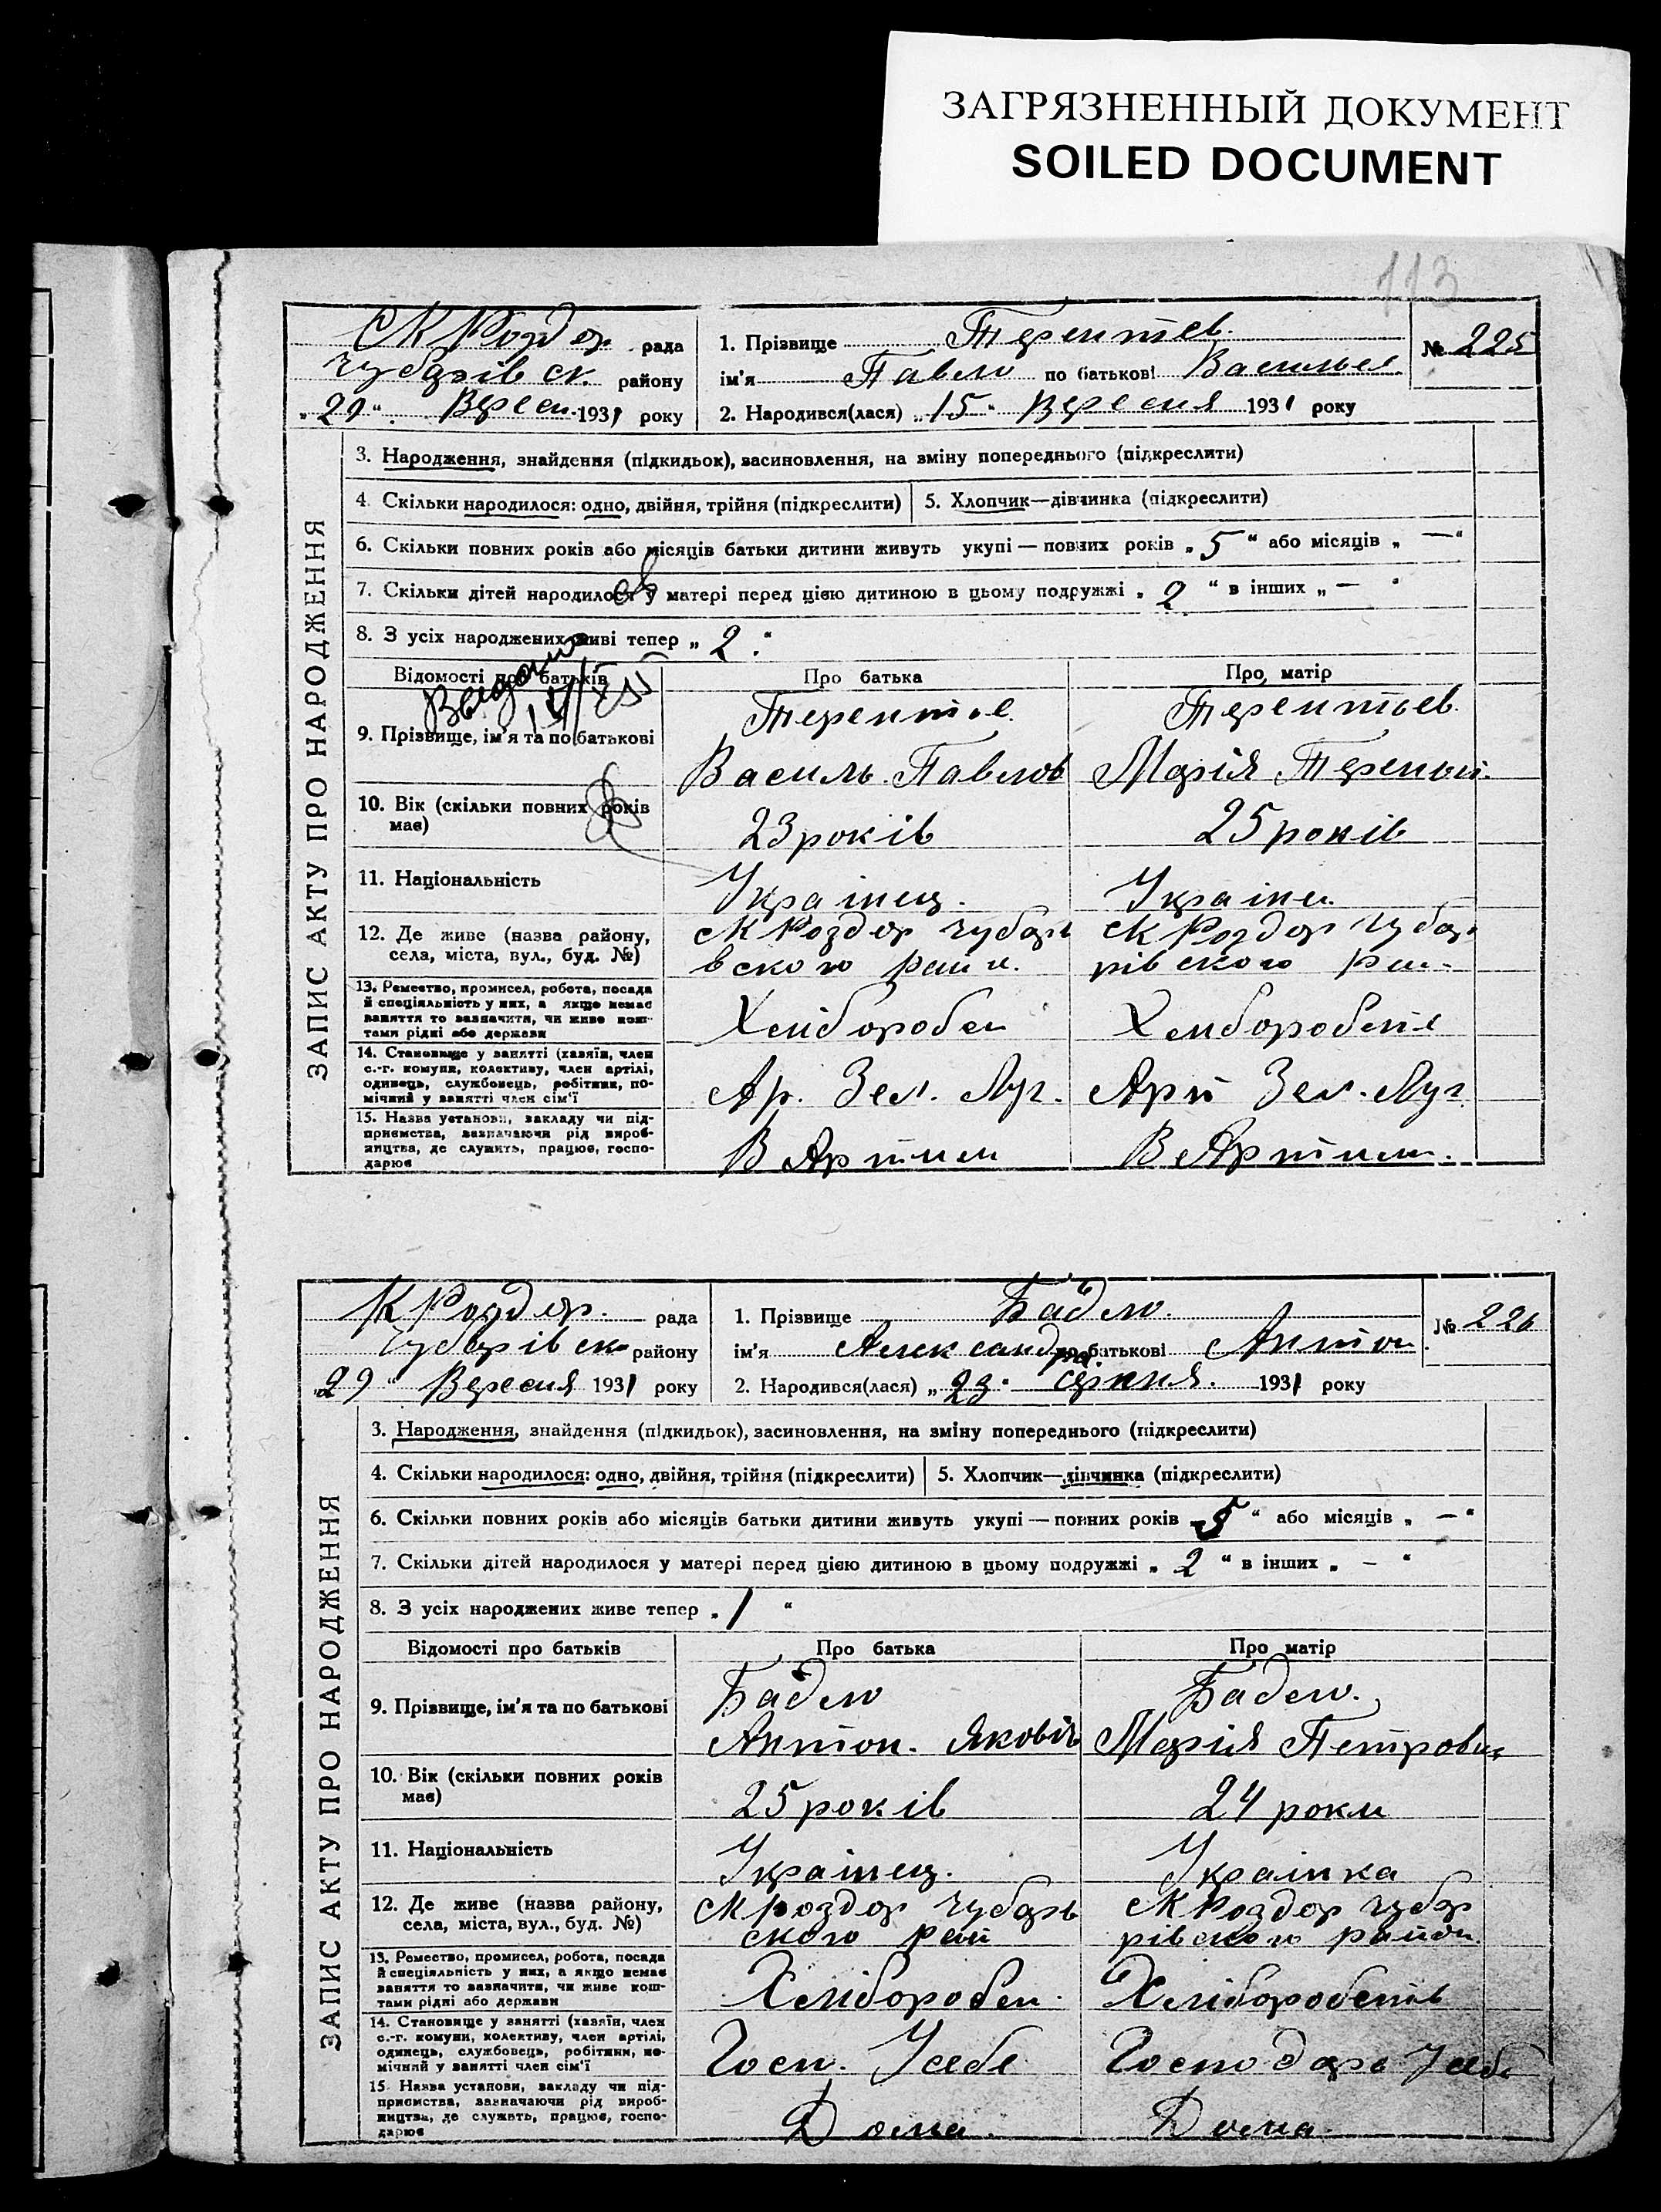 ЗАГРЯЗНЕННЫЙ ДОКУМЕНТ
SOILED DOCUMENT
113
СК Роздор рада
Чубарів ск. району
"29" Вересн 1931 року
1. Прізвище Терентев.
ім'я Павло по батькові Васильев.
2. Народився(лася) "15" Вересня 1931 року
№ 225
ЗАПИС АКТУ ПРО НАРОДЖЕННЯ
3. Народження, знайдення (підкидьок), засиновлення, на зміну попереднього (підкреслити)
4. Скільки народилося: одно, двійня, трійня (підкреслити) 5. Хлопчик—дівчинка (підкреслити)
6. Скільки повних років або місяців батьки дитини живуть укупі — повних років „5“ або місяців „—“
7. Скільки дітей народилося у матері перед цією дитиною в цьому подружжі „2“ в інших „—“
8. З усіх народжених живі тепер „2“
Відомості про батьків Про батька Про матір
9. Прізвище, ім'я та по батькові
Терентев. Терентьев.
Василь Павлов Марія
10. Вік (скільки повних років має) 23 років 25 років
11. Національність Українец. Украінк
12. Де живе (назва району, села, міста, вул., буд. №)
СК Роздор Чубарь СК Роздор Чубар
вского Район. рівского Рай
13. Ремество, промисел, робота, посада
й спеціяльність у них, а якщо немає
заняття то зазначити, чи живе кош-
тами рідні або держави
Хлібороб
14. Становище у занятті (хазяїн, член
с.-г. комуни, колективу, член артілі,
одинець, службовець, робітник, по-
мічний у занятті член сім'ї
Ар. Зел. Луг. Арт Зел. Луг
15. Назва установи, закладу чи під-
приємства, зазначаючи рід вироб-
ництва, де служить, працює, госпо-
дарює
В Артили В Артили.
К Роздор. рада
Чубарівск району
"29" Вересня 1931 року
1. Прізвище Бадло.
ім'я Александра. по батькові Антон.
2. Народився(лася) „23“ серпня. 1931 року
№ 226
ЗАПИС АКТУ ПРО НАРОДЖЕННЯ
3. Народження, знайдення (підкидьок), засиновлення, на зміну попереднього (підкреслити)
4. Скільки народилося: одно, двійня, трійня (підкреслити) 5. Хлопчик—дівчинка (підкреслити)
6. Скільки повних років або місяців батьки дитини живуть укупі — повних років „5“ або місяців „—“
7. Скільки дітей народилося у матері перед цією дитиною в цьому подружжі „2“ в інших „—“
8. З усіх народжених живе тепер „1“
Відомості про батьків Про батька Про матір
9. Прізвище, ім'я та по батькові
Бадло Бадло.
Антон. Яковів Марія Петровн
10. Вік (скільки повних років має) 25 років 24 роки
11. Національність Українец. Українка
12. Де живе (назва району, села, міста, вул., буд. №)
СК Роздор Чубарь СК Роздор Чубар
ского Рай рівского район
13. Ремество, промисел, робота, посада
й спеціяльність у них, а якщо немає
заняття то зазначити, чи живе кош-
тами рідні або держави
Хлібороб
14. Становище у занятті (хазяїн, член
с.-г. комуни, колективу, член артілі,
одинець, службовець, робітник, по-
мічний у занятті член сім'ї
Госп. У себе Господарь У себе
15 Назва установи, закладу чи під-
приємства, зазначаючи рід вироб-
ництва, де служить, працює, госпо-
дарює
Дома. Дома.